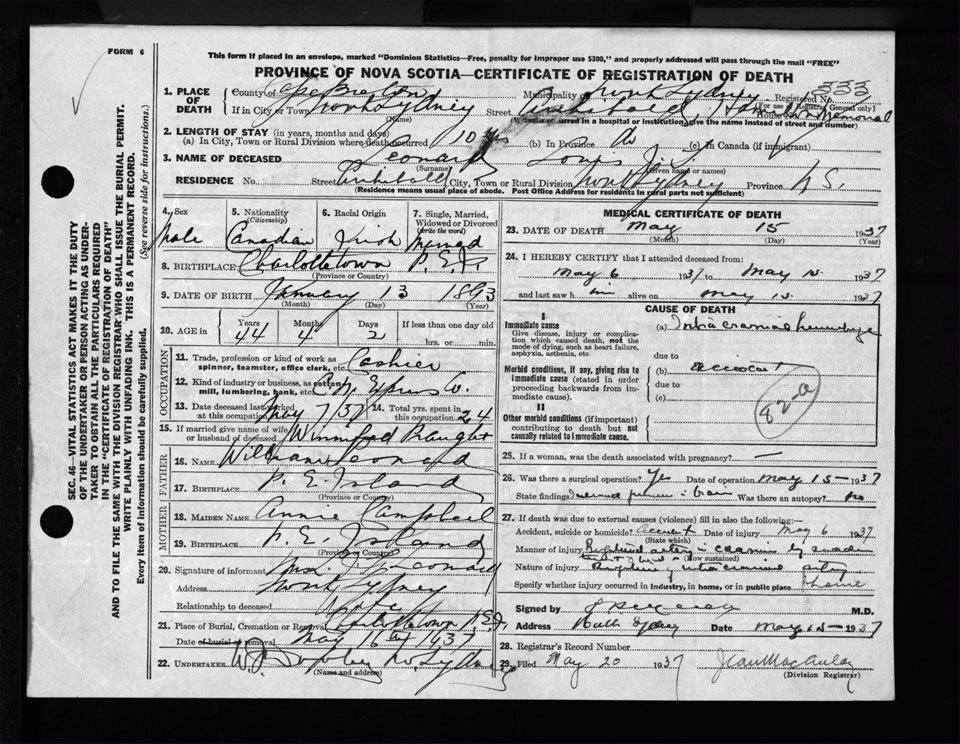 FORM 6
This form if placed in an envelope, marked "Dominion Statistics—Free, penalty for improper use $300," and properly addressed will pass through the mail "FREE"
PROVINCE OF NOVA SCOTIA—CERTIFICATE OF REGISTRATION OF DEATH
SEC. 46—VITAL STATISTICS ACT MAKES IT THE DUTY
OF THE UNDERTAKER OR PERSON ACTING AS UNDER-
TAKER TO OBTAIN ALL THE PARTICULARS REQUIRED
IN THE "CERTIFICATE OF REGISTRATION OF DEATH"
AND TO FILE THE SAME WITH THE DIVISION REGISTRAR WHO SHALL ISSUE THE BURIAL PERMIT.
WRITE PLAINLY WITH UNFADING INK. THIS IS A PERMANENT RECORD.
Every item of information should be carefully supplied. (See reverse side for instructions.)
1. PLACE OF DEATH County of Cape Breton Municipality of North Sydney Registered No. 333
(For use of Registrar General only)
If in City or Town North Sydney Street House No. Hamilton Memorial
(Name) (If death occurred in a hospital or institution, give the name instead of street and number)
2. LENGTH OF STAY (in years, months and days)
(a) In City, Town or Rural Division where death occurred 10 (b) In Province (c) In Canada (if immigrant)
3. NAME OF DECEASED Leonard Louis
(Surname) (Given name or names)
RESIDENCE No. Street City, Town or Rural Division North Sydney Province N S.
(Residence means usual place of abode. Post Office Address for residents in rural parts not sufficient)
4. Sex Male
5. Nationality (Citizenship) Canadian
6. Racial Origin Irish
7. Single, Married, Widowed or Divorced (write the word) Married
8. BIRTHPLACE Charlottetown P.E.I.
(Province or Country)
9. DATE OF BIRTH January 13 1893
(Month) (Day) (Year)
10. AGE in Years 44 Months 4 Days 2 If less than one day old
hrs. or min.
OCCUPATION
11. Trade, profession or kind of work as spinner, teamster, office clerk, etc. Cashier
12. Kind of industry or business, as cotton mill, lumbering, bank, etc. C.N. Express Co.
13. Date deceased last worked at this occupation May 7/37 14. Total yrs. spent in this occupation 24
15. If married give name of wife or husband of deceased Winnifred Praught
FATHER
16. NAME William Leonard
17. BIRTHPLACE P. E. Island
(Province or Country)
MOTHER
18. MAIDEN NAME Annie Campbell
19. BIRTHPLACE P. E. Island
(Province or Country)
20. Signature of informant Mrs. Leonard
Address North Sydney
Relationship to deceased Wife
21. Place of Burial, Cremation or Removal Charlottetown P.E.I.
Date of burial or removal May 16th 1937
22. UNDERTAKER No Sydney
(Name and address)
MEDICAL CERTIFICATE OF DEATH
23. DATE OF DEATH May 15 1937
(Month) (Day) (Year)
24. I HEREBY CERTIFY that I attended deceased from:
May 6 1937 to May 15 1937
and last saw him alive on May 15 1937
CAUSE OF DEATH
I
Immediate cause
Give disease, injury or complication which caused death, not the mode of dying, such as heart failure, asphyxia, asthenia, etc.
(a) Intracranial hemorrhage
due to
Morbid conditions, if any, giving rise to immediate cause (stated in order proceeding backwards from immediate cause).
(b) accident
due to
(c)
82-a
II
Other morbid conditions (if important) contributing to death but not causally related to immediate cause.
25. If a woman, was the death associated with pregnancy? —
26. Was there a surgical operation? Yes Date of operation May 15 - 1937
State findings Was there an autopsy? no
27. If death was due to external causes (violence) fill in also the following:—
Accident, suicide or homicide? accident Date of injury May 6 1937
(State which)
Manner of injury Ruptured artery in cranium by sudden
(How sustained)
Nature of injury Rupture of intracranial artery
Specify whether injury occurred in industry, in home, or in public place home
Signed by M.D.
Address North Sydney Date May 15 - 1937
28. Registrar's Record Number
29. Filed May 20 1937 Jean MacAulay
(Division Registrar)